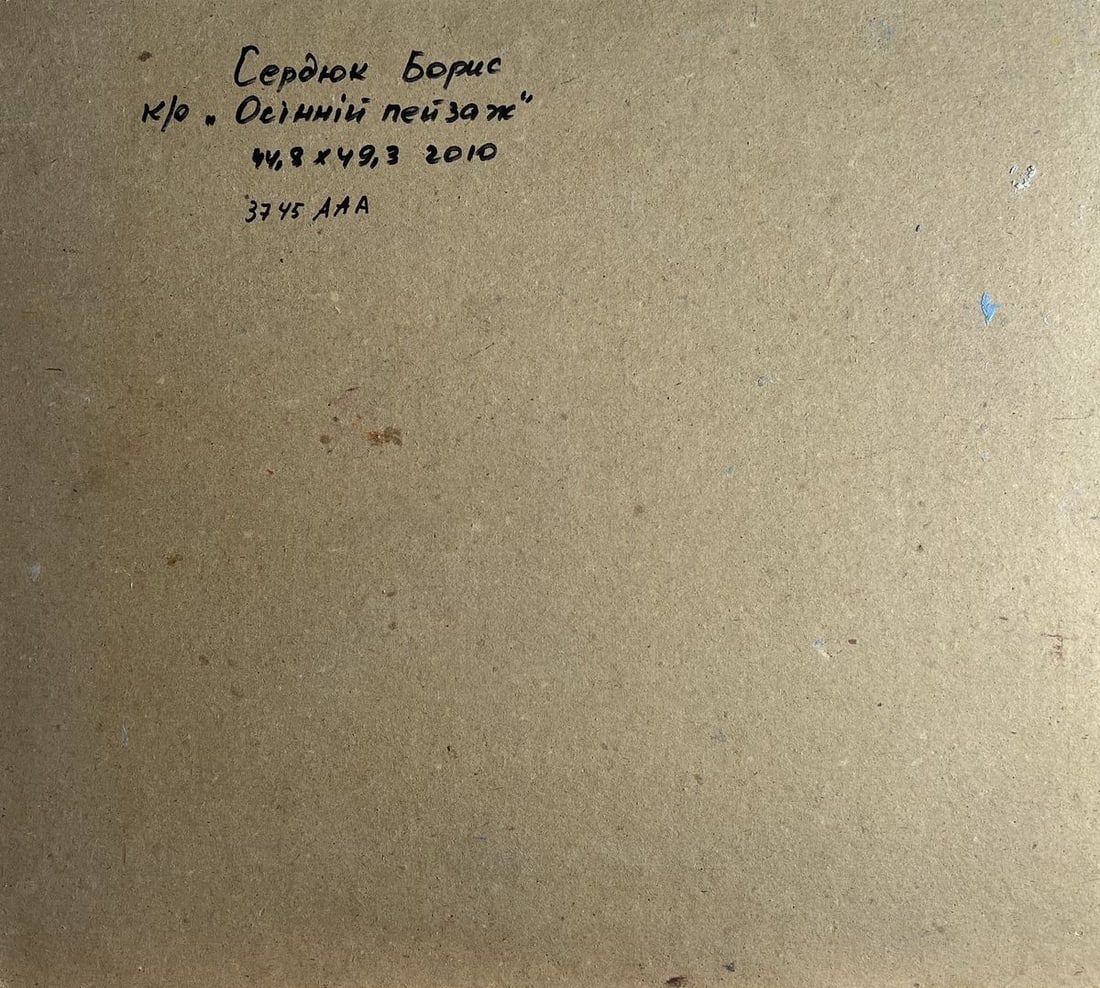 Сердюк Борис
к/о „Осінній пейзаж"
44,8 x 49,3 2010
3745 AAA